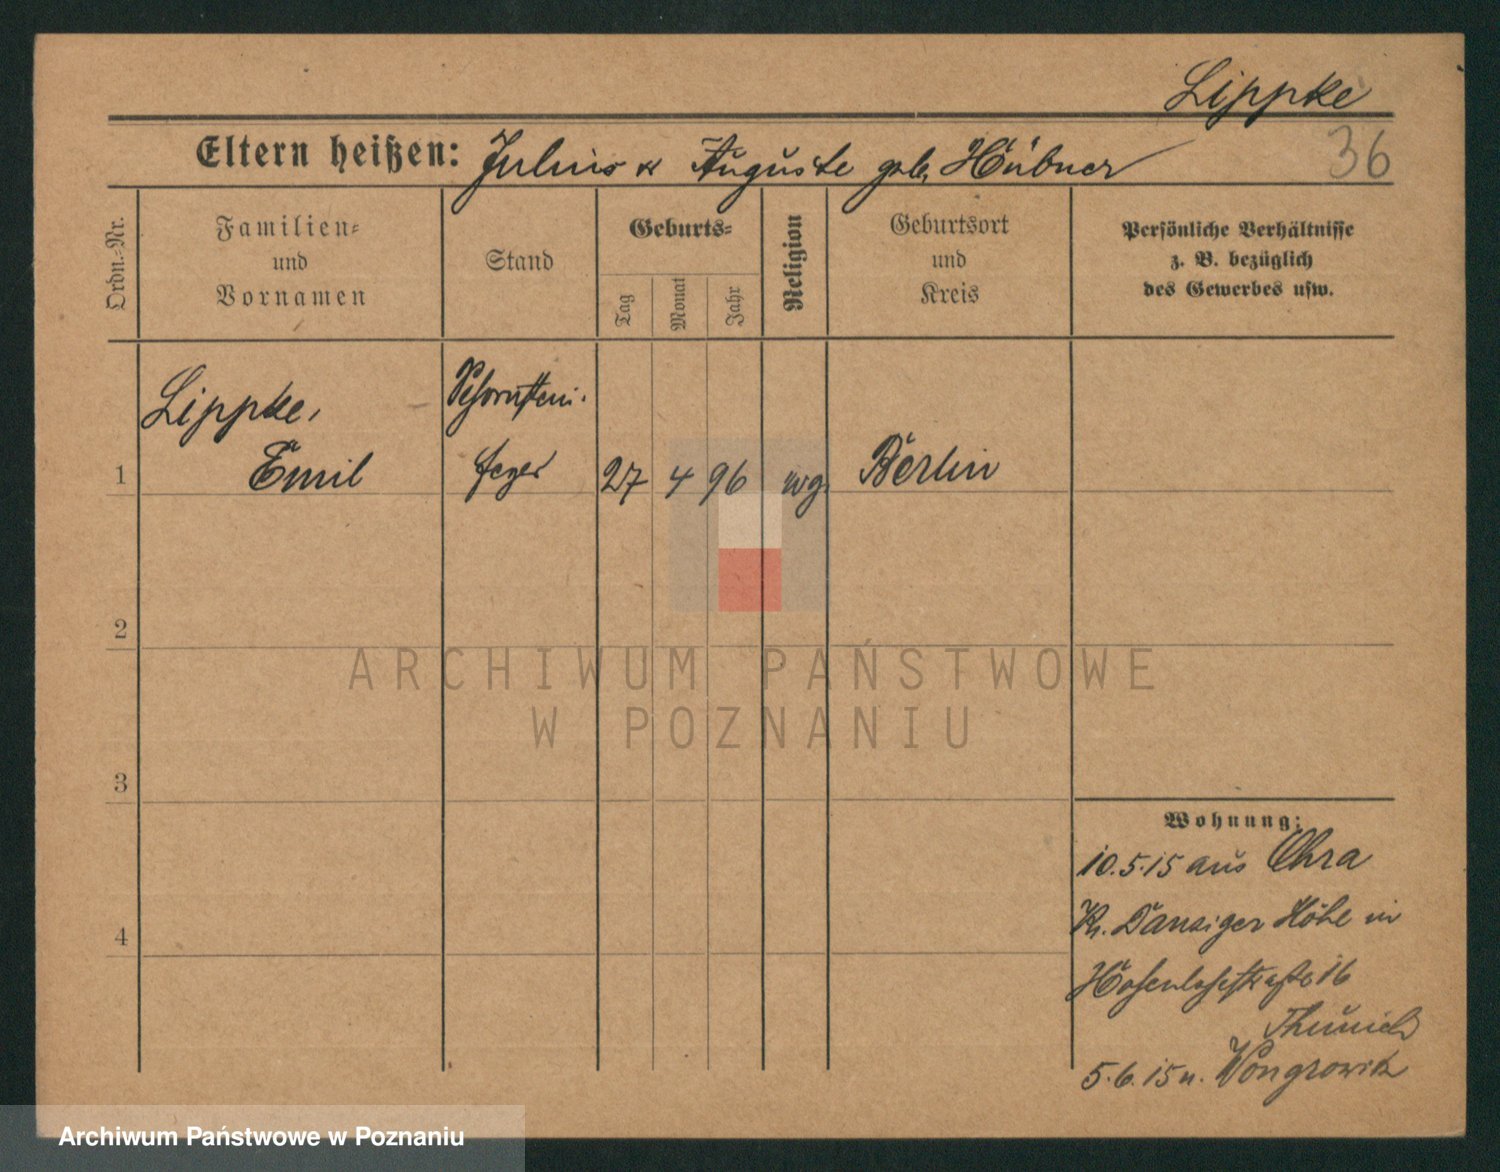 Lippke
36
Eltern heißen: Julius & Auguste geb. Hübner
Ordn.-Nr.
Familien-
und
Vornamen
Stand
Geburts-
Tag
Monat
Jahr
Religion
Geburtsort
und
Kreis
Persönliche Verhältnisse
z. B. bezüglich
des Gewerbes usw.
Lippke,
Emil
Schornstein-
feger
1
27
4
96
Berlin
2
ARCHIWUM PAŃSTWOWE
W POZNANIU
3
Wohnung:
10.5.15 aus Ohra
Kr. Danziger Höhe in
4
Hohenlohestraße 16
5.6.15 n. Wongrowitz
Archiwum Państwowe w Poznaniu